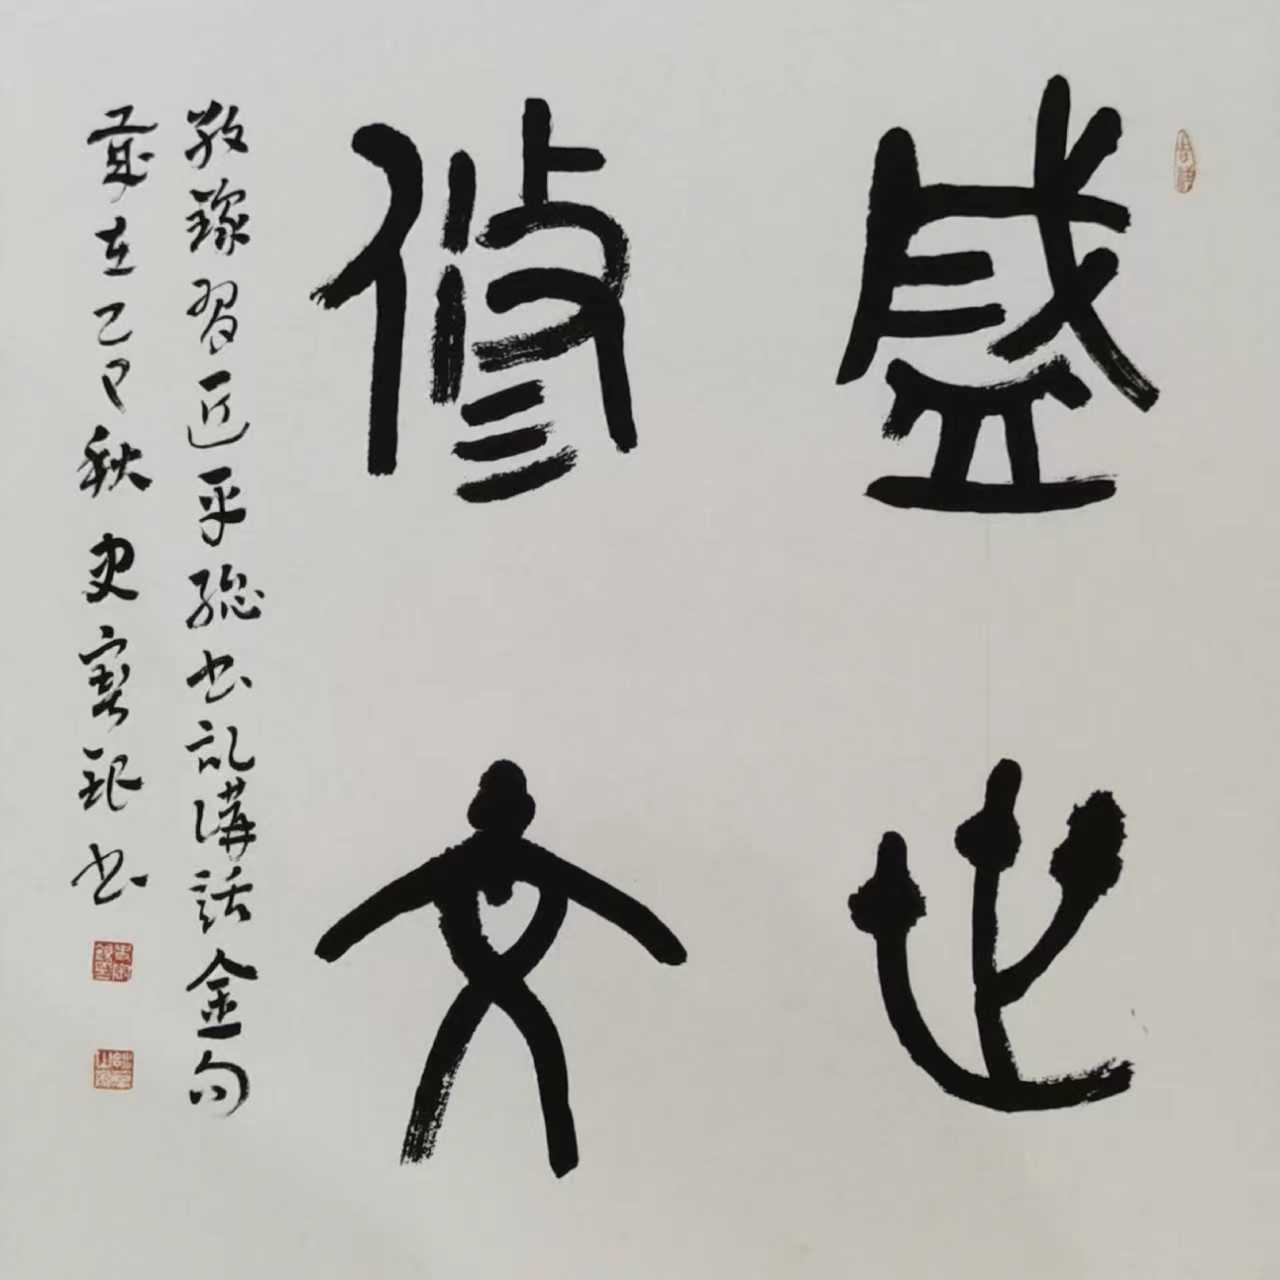 盛世
修文
敬錄習近平總书記講話金句
歲在乙巳秋史寶銀书